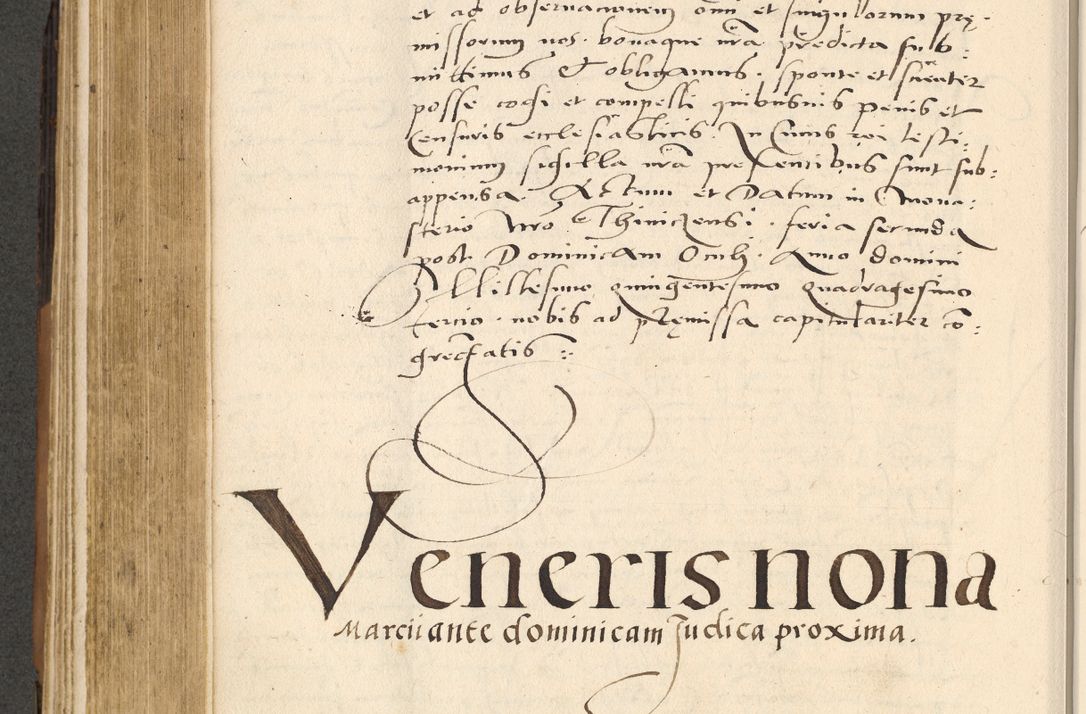 et ad observacionem om̄i et singulorum prę-
missorum nos. bonaque nr̄a predicta sub-
mittimus & obligamus. sponte et
posse cogi et compelli quibusuis penis et
Censuris ecclesiasticis. In Cuius rei testi-
monium sigilla nr̄a presentibus sunt sub-
appensa. Actum et Datum in Mona-
sterio nr̄o Thinicensi. feria secunda
post Dominicam Oculi. Anno domini
Millesimo quingentesimo quadragesimo
tercio. nobis ad pręmissa capitulariter cō-
gregatis
Veneris nona
Marcii ante dominicam Judica proxima.